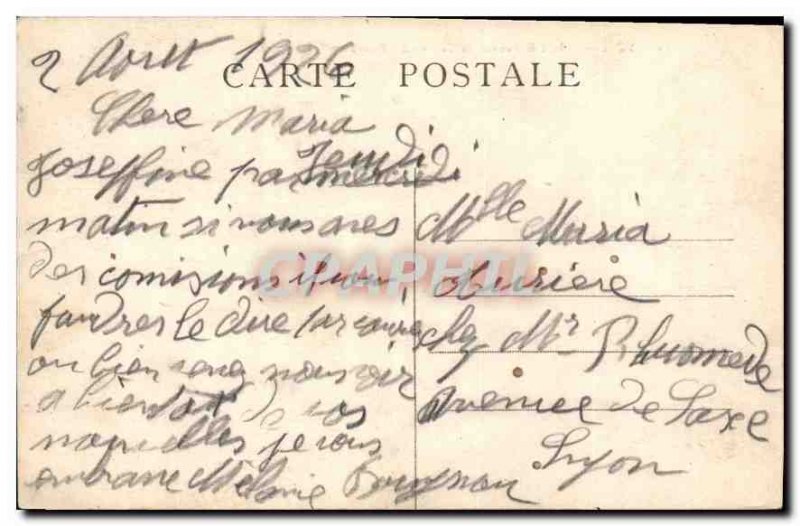 2 Avril 1926
CARTE POSTALE
Chere Maria
Joseffine par Jeudi
mercredi
matin si vous aves
des comisions il vous
faudres le dire par
ou bien venez nous voir
a bientot de vos
nouvelles je vous
embrasse Melanie
Mlle Maria
chez Mr
Avenue de Saxe
Lyon
CPAPHIL